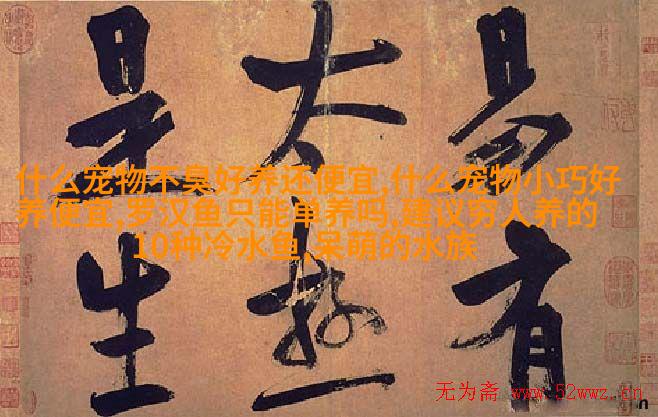 易有
太極
是生
什么宠物不臭好养还便宜,什么宠物小巧好
养便宜,罗汉鱼只能单养吗,建议穷人养的
10种冷水鱼,呆萌的水族
无为斋 www.52wwz.cn
n